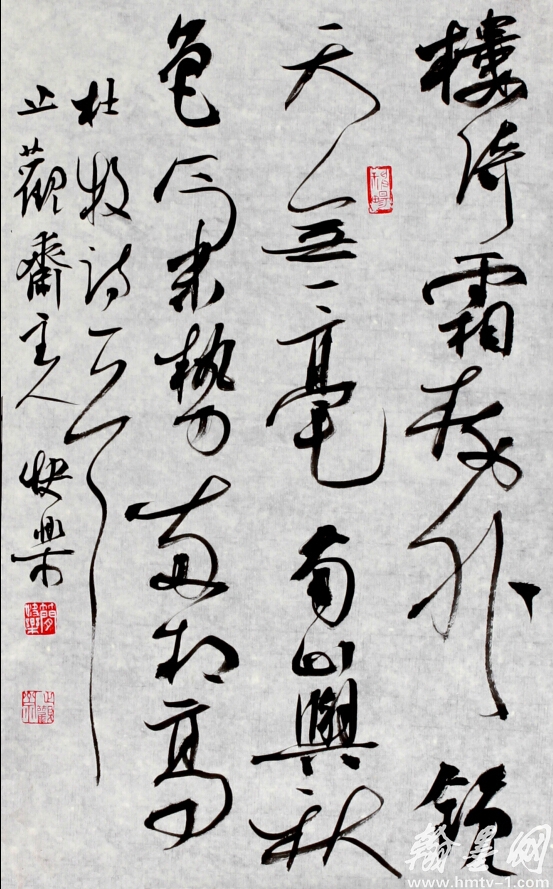 樓倚霜樹外鏡
天無一毫南山與秋
色氣勢兩相高
杜牧詩一首
止觀齋主人快樂
翰墨网
www.hmtv-1.com